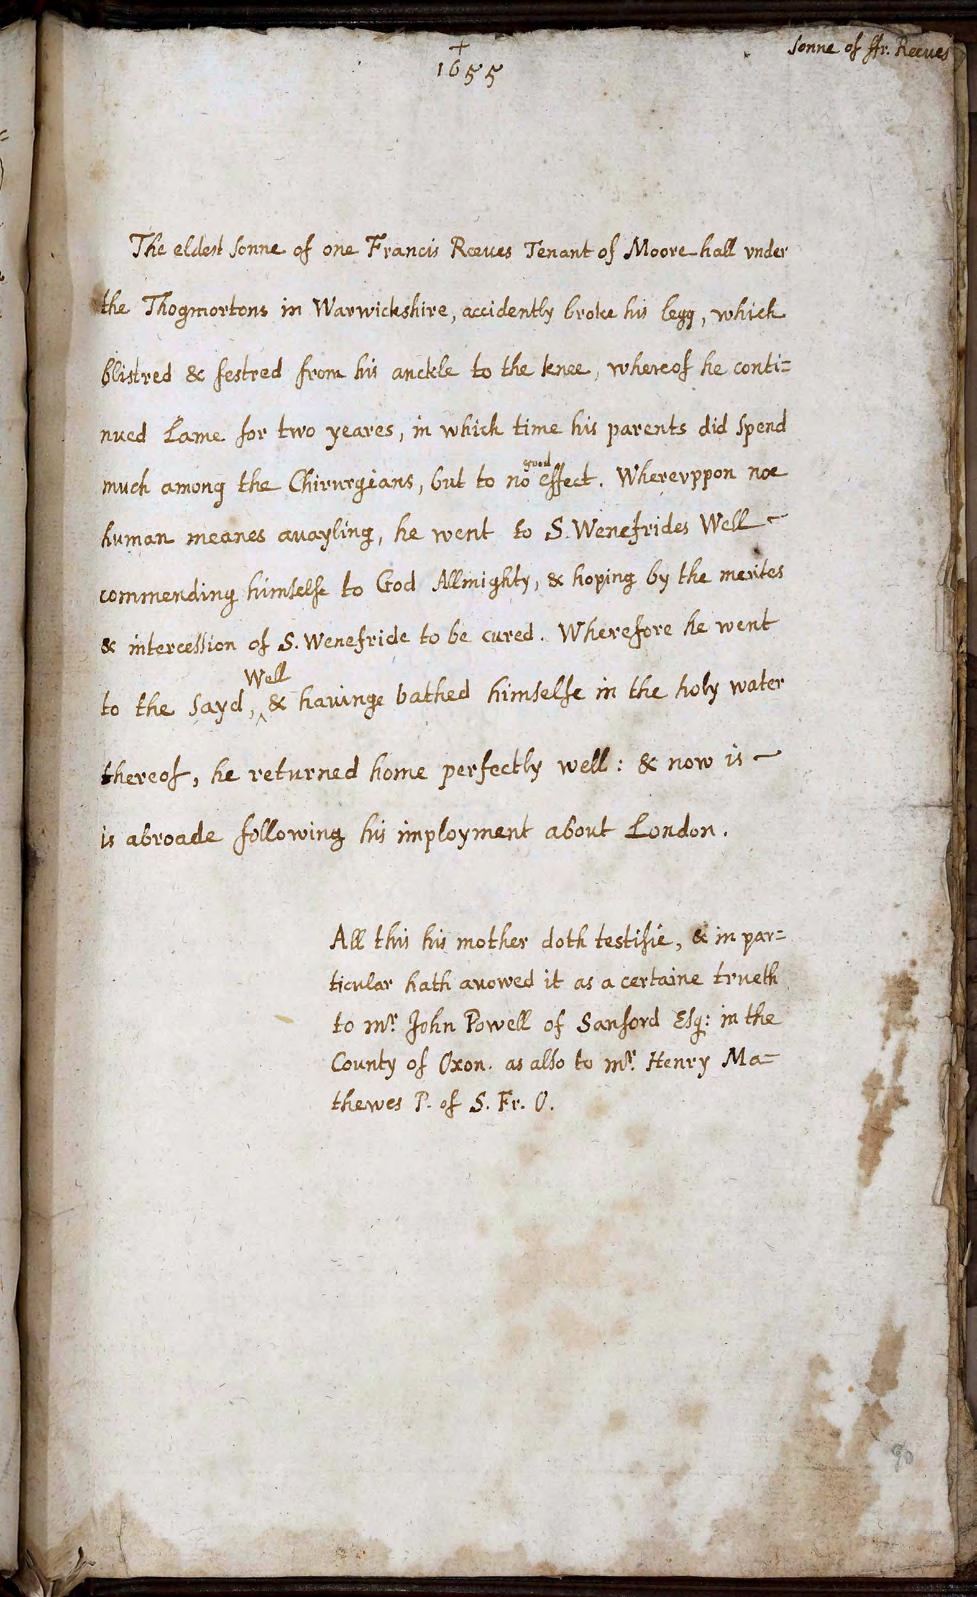 +
1655
sonne of ffr. Reeues
The eldest sonne of one Francis Reeues Tenant of Moore-hall vnder
the Thogmortons in Warwickshire, accidently broke his legg, which
blistred & festred from his anckle to the knee, whereof he conti=
nued Lame for two yeares, in which time his parents did spend
much among the Chirurgians, but to no good effect. Wherevppon noe
human meanes auayling, he went to S. Wenefrides Well
commending himselfe to God Allmighty, & hoping by the merites
& intercession of S. Wenefride to be cured. Wherefore he went
to the sayd, Well & hauinge bathed himselfe in the holy water
thereof, he returned home perfectly well: & now is
is abroade following his imployment about London.
All this his mother doth testifie, & in par=
ticular hath avowed it as a certaine trueth
to mr. John Powell of Sanford Esq: in the
County of Oxon. as also to mr. Henry Ma=
thewes P. of S. Fr. O.
90